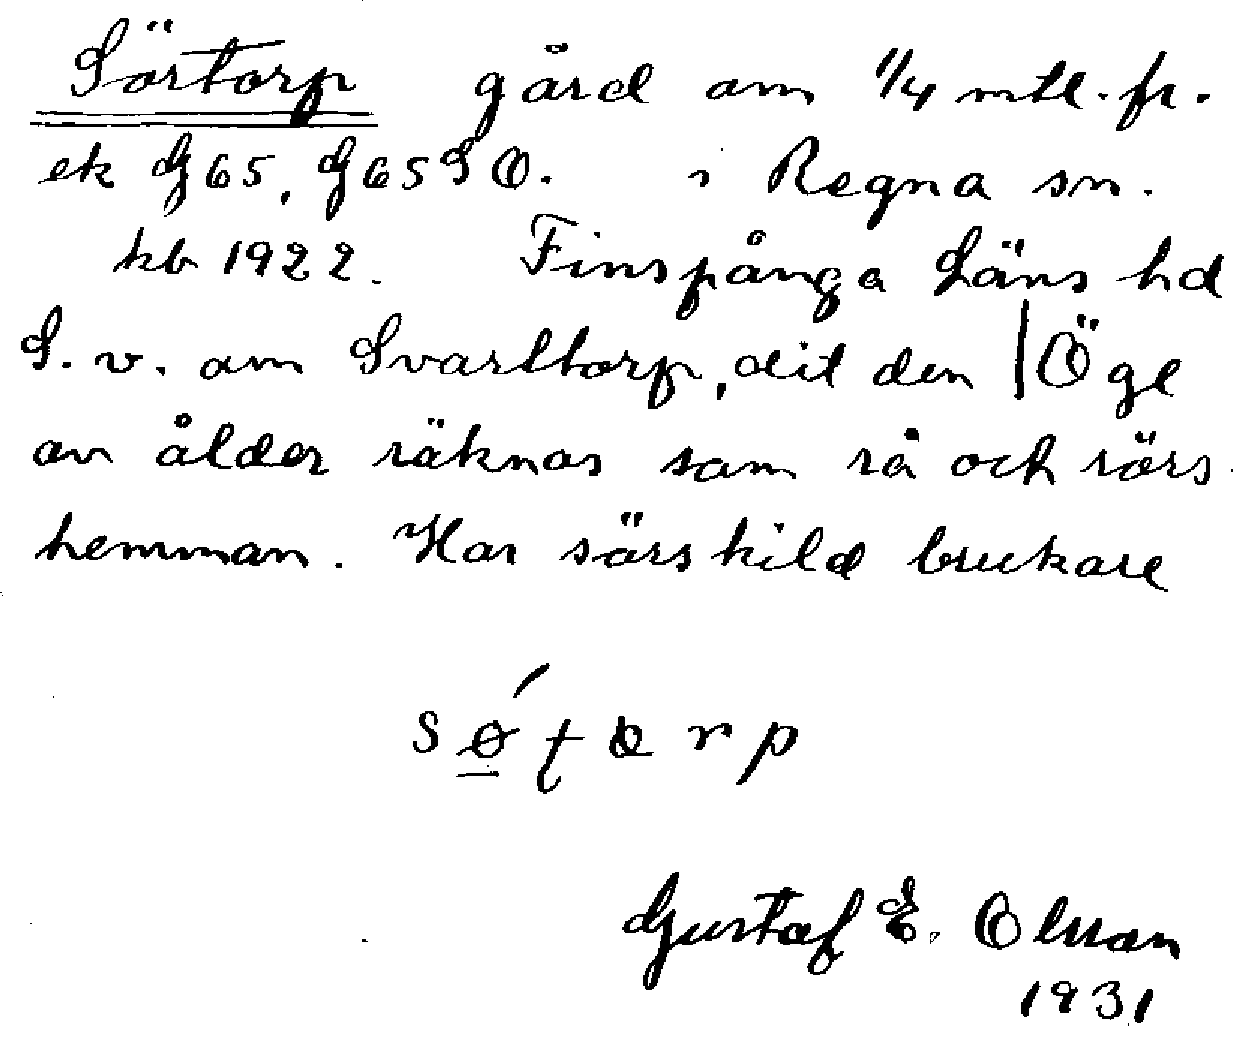 Sörtorp gård om 1/4 mtl. fr.
ek G65, G65SO. i Regna sn.
kb 1922. Finspånga Läns hd
S. v. om Svarttorp, dit den | Ögl
av ålder räknas som rå och rörs
hemman. Har särskild brukare
Gustaf E. Olsson
1931